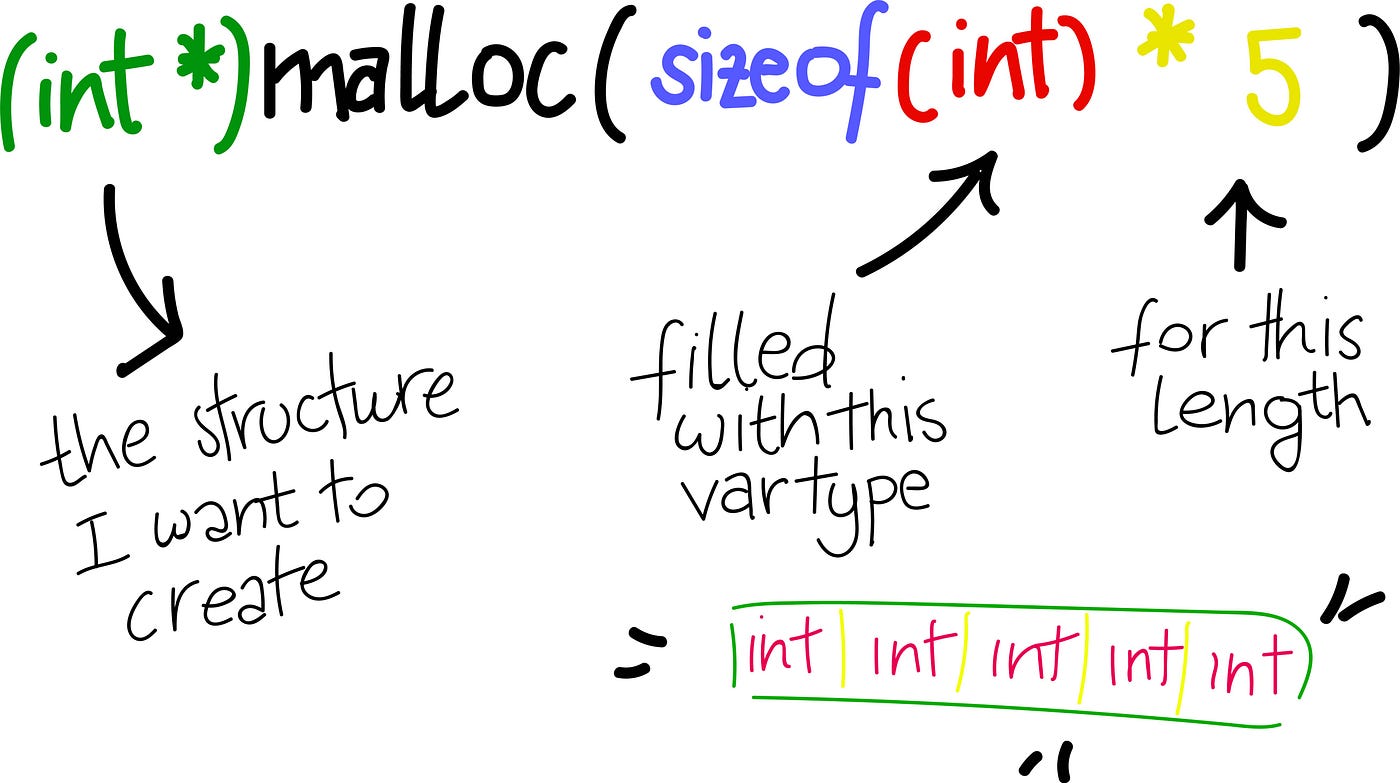 (int *)malloc(sizeof(int) * 5)
the structure
I want to
create
filled
with this
var type
for this
length
int int int int int